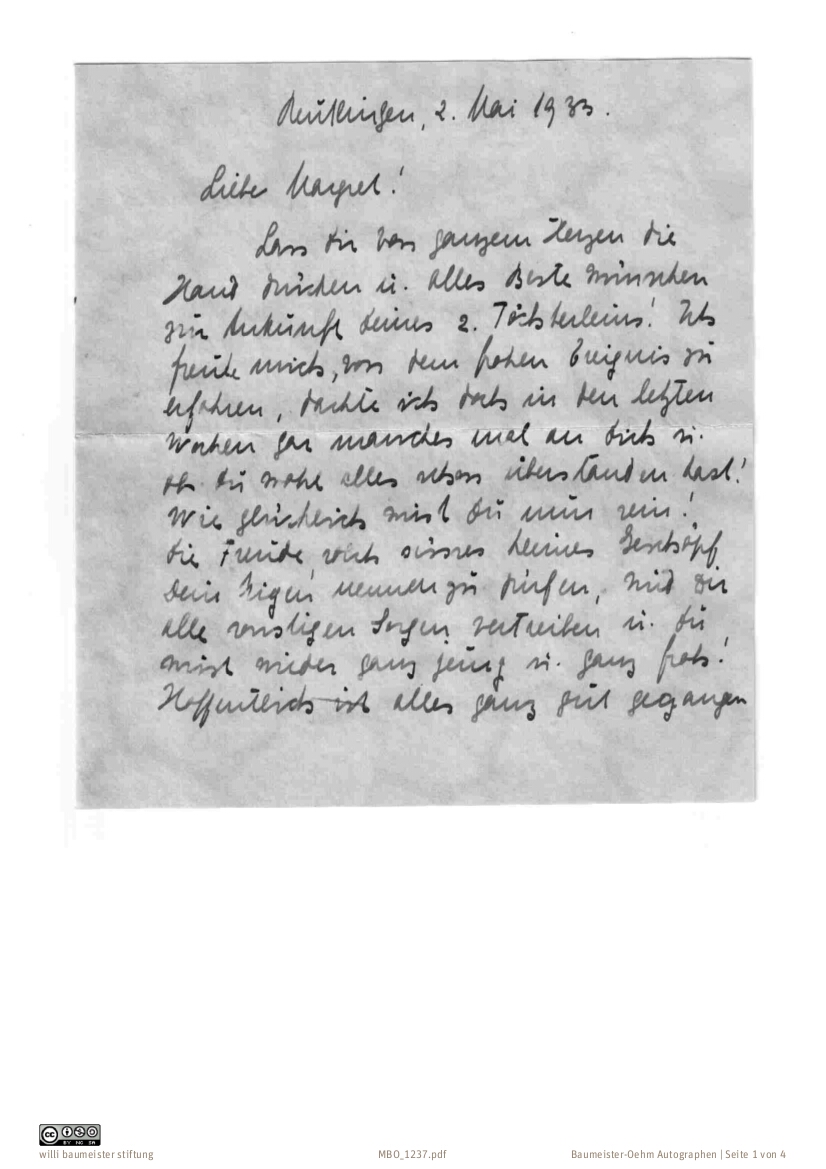 Reutlingen, 2. Mai 1933.
Liebe Margret!
Lass dir von ganzem Herzen die
Hand drücken u. alles Beste wünschen
zur Ankunft deines 2. Töchterleins! Ich
freute mich, von dem frohen Ereignis zu
erfahren, dachte ich doch in den letzten
Wochen gar manches mal an dich u.
ob du wohl alles schon überstanden hast!
Wie glücklich wirst du nun sein!
die Freude, solch süsses kleines Geschöpf
dein Eigen nennen zu dürfen, wird dir
alle sonstigen Sorgen vertreiben u. du
wirst wieder ganz jung u. ganz froh!
Hoffentlich ist alles ganz gut gegangen
CC BY NC SA
willi baumeister stiftung
MBO_1237.pdf
Baumeister-Oehm Autographen | Seite 1 von 4